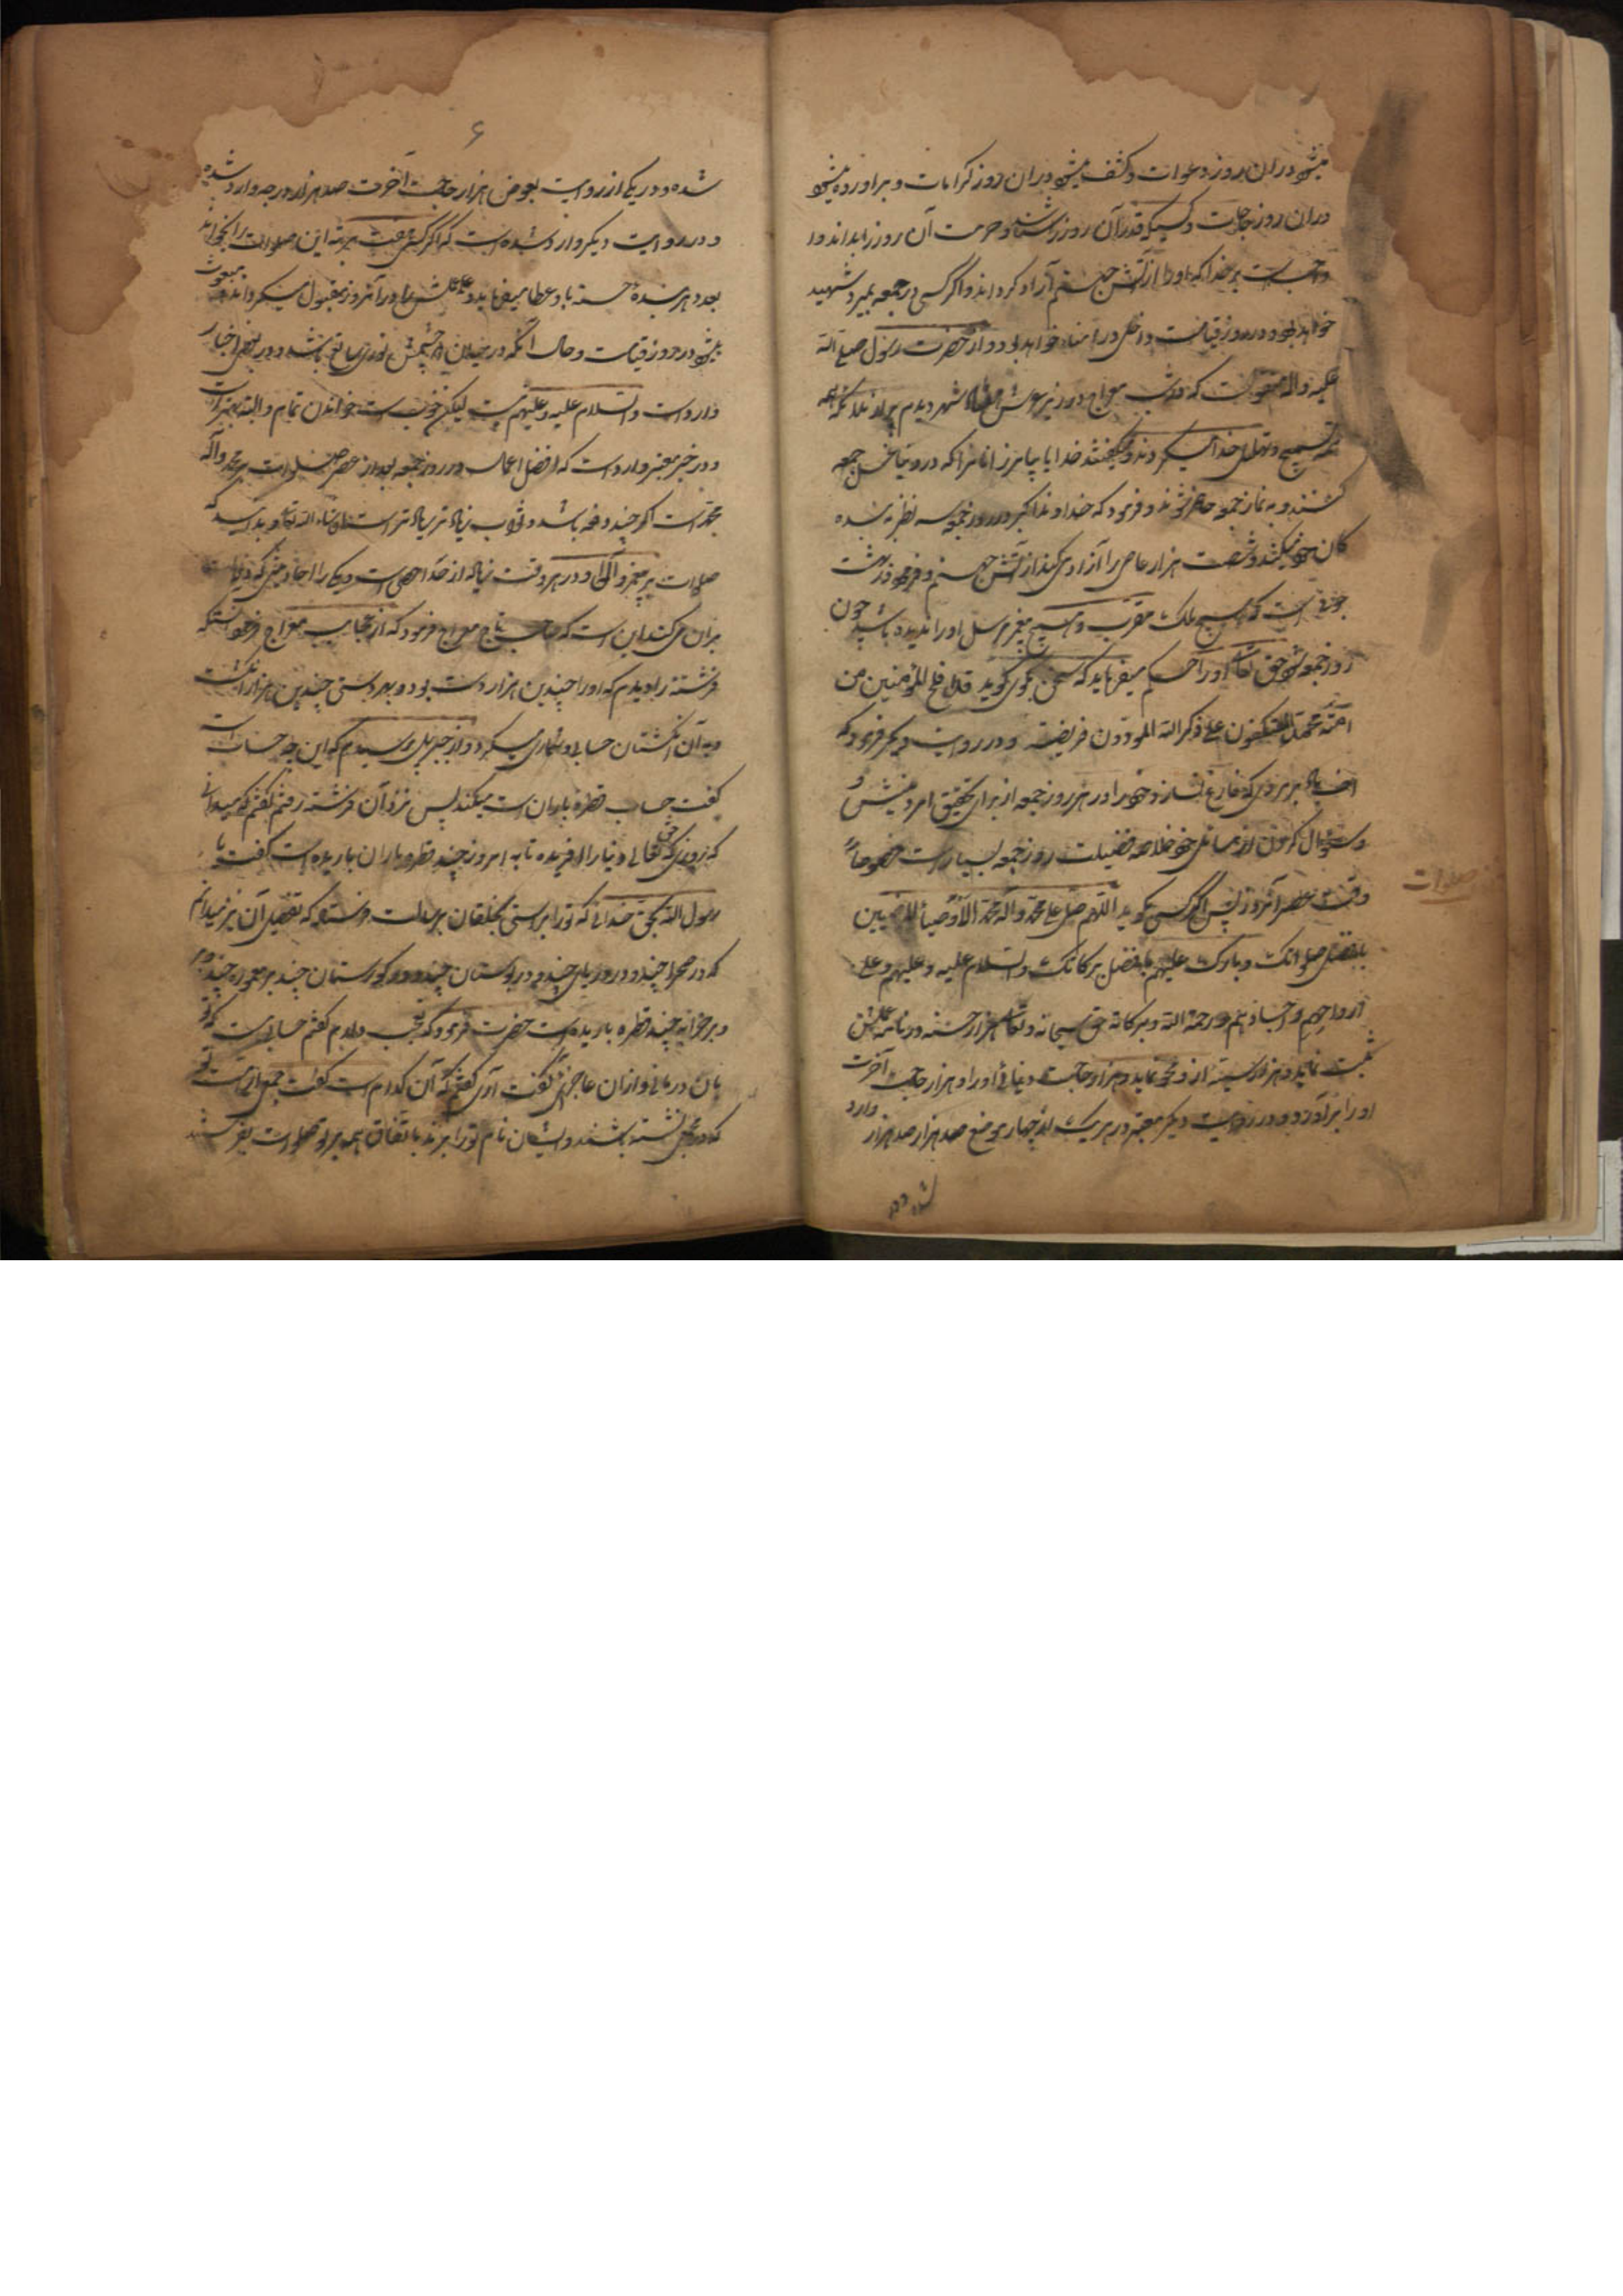 میشود در آن روز دعوات و کشف میشود در آن روز کرابات و برآورده میشود
در آن روز حاجات و کسیکه قدر آن روز را شناسد و حرمت آن روز را بداند
واجبست بر خدا که او را از آتش جهنم آزاد گرداند و اگر کسی در جمعه بمیرد شهید
خواهد بود و در روز قیامت داخل در امناء خواهد بود و از حضرت رسول صلی الله
علیه و آله منقولست که در شب معراج در زیر عرش شهر دیدم پر از ملائکه همه
تسبیح و تهلیل خدا میکردند و میگفتند خدایا بیامرز آنانرا که در غسل جمعه
کنند و به نماز جمعه حاضر شوند و فرمود که خداوند اکبر در روز جمعه نظر به بنده
کان خود میکند و شصت هزار عاصی را آزاد میکند از آتش جهنم و فرمود در بهشت
است که هیچ ملک مقرب و هیچ پیغمبر مرسل او را ندیده باشد چون
روز جمعه شود حق تعالی او را حکم میفرماید که سخن بگوی گوید قد افلح المؤمنین من
امة محمد علی ذکر الله المؤدون فریضته و در روایت دیگر فرمود که
اف باد بر مردی که فارغ نسازد خود را در هر روز جمعه از برای تحقیق امر دینش و
و سؤال کردن از مسائل خود خلاصه فضیلت روز جمعه بسیار است خصوصاً
وقت عصر آنروز پس اگر کسی بگوید اللهم صل علی محمد و آل محمد الاوصیاء المرضیین
بافضل صلواتک و بارک علیهم بافضل برکاتک والسلام علیه و علیهم و علی
ارواحهم و اجسادهم و رحمة الله و برکاته حق سبحانه و تعالی هزار حسنه در نامه عملش
ثبت نماید و هزار سیئه از او محو نماید و هزار حاجت دنیائی او را و هزار حاجت آخرت
او را برآورد و در روایت دیگر معتبر در هر یک از چهار موضع صد هزار صد هزار وارد
صلوات
شده و در
۶
شده و در یکی از روایت بعوض هزار حاجت آخرت صد هزار درجه وارد شده
و در روایت دیگر وارد شده است که اگر کسی هفت مرتبه این صلوات را بخواند
بعدد هر بنده حسنه باو عطا میفرماید و عملش را در آنروز مقبول میگرداند و مبعوث
میشود در روز قیامت و حال آنکه در میان دو چشمش نوری ساطع باشد و در بعضی اخبار
وارد است والسلام علیه و علیهم نیست لیکن خوب است خواندن تمام و البته بهتر است
و در خبر معتبر وارد است که افضل اعمال در روز جمعه بعد از عصر صلوات بر محمد و آل
محمد است اگر چند دفعه باشد و ثواب زیاد تر زیاد تر است انشاء الله تعالی و بدانکه
صلوات بر پیغمبر و آل او در هر وقت زیاد از حد احصی است و یکی را از احادیثی که دلالت
بر آن میکند این است که صاحب تاج معراج فرمود که از عجایب معراج فرمود آنکه
فرشته را دیدم که او را چندین هزار دست بود و بهر دستی چندین هزار انگشت
و به آن انگشتان حسابی و شماری میکرد و از جبرئیل پرسیدم که این چه حساب است
گفت حساب قطره باران است میکند پس نزد آن فرشته رفتم گفتم که میدانی
که از روزی که حق تعالی دنیا را آفریده تا به امروز چند قطره باران باریده است گفت یا
رسول الله بحق خدائی که تو را براستی بخلقان برسالت فرستاد که تفصیل آن نیز میدانم
که در صحرا چند و در دریای چند و در بوستان چند و در گورستان چند بر معموره چند و بر
و بر خرابه چند قطره باریده است حضرت فرمود که تعجب دارم گفتم حسابی است که تو
بآن درمانی و از آن عاجز آئی گفت آری گفتم که آن کدام است گفت جمعی از امت تو
که در مجلس نشسته باشند و ایشان نام تو را برند باتفاق همه بر تو صلوات بفرستند